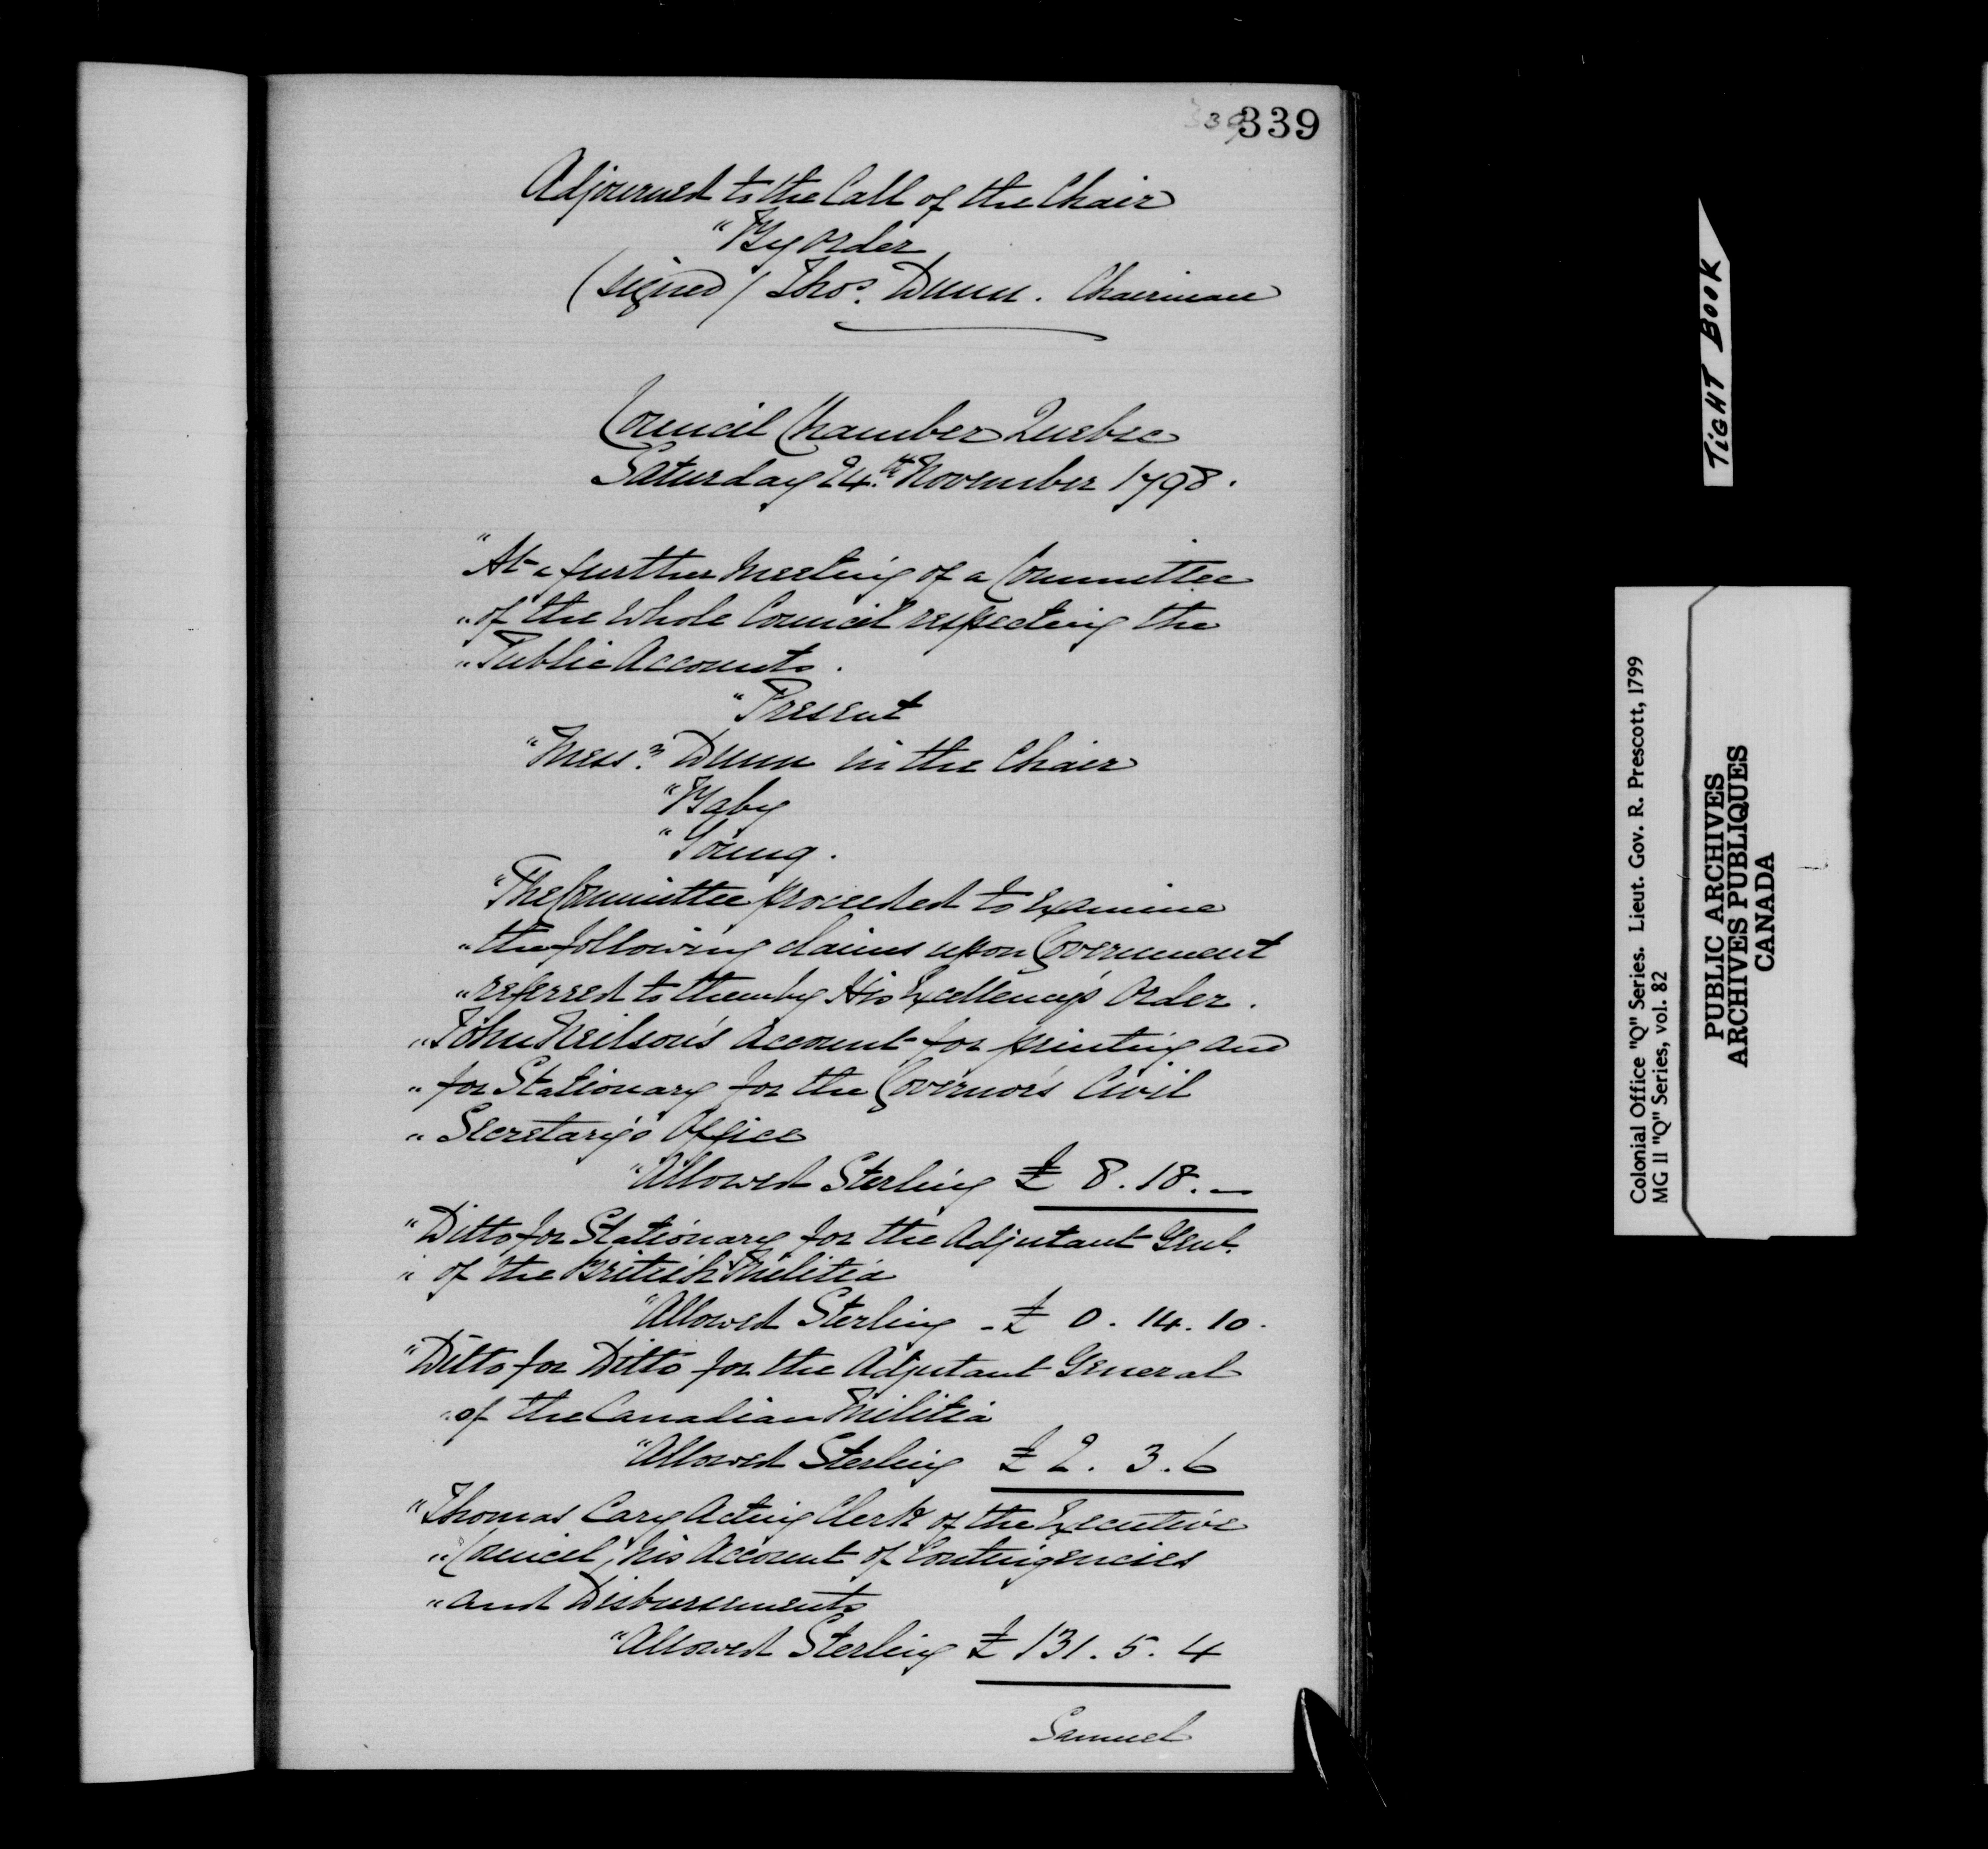 339
339
Adjourned to the Call of the Chair
"By Order
(signed) Thos. Dunn. Chairman
Council Chamber Quebec
Saturday 24th November 1798.
"At a further Meeting of a Committee
"of the Whole Council respecting the
"Public Accounts.
"Present
"Messrs. Dunn in the Chair
"Baby
"Young.
"The Committee proceeded to Examine
"the following claims upon Government
"referred to them by His Excellency's Order.
"John Neilson's Account for printing and
"for Stationary for the Governor's Civil
"Secretary's Office
"Allowed Sterling £ 8.18.—
"Ditto for Stationary for the Adjutant Genl.
"of the British Militia
"Allowed Sterling - £ 0.14.10.
"Ditto for Ditto for the Adjutant General
"of the Canadian Militia
"Allowed Sterling £ 2.3.6
"Thomas Cary Acting Clerk of the Executive
"Council, his Account of Contingencies
"and Disbursements
"Allowed Sterling £ 131.5.4
Samuel
TIGHT BOOK
Colonial Office "Q" Series. Lieut. Gov. R. Prescott, 1799
MG 11 "Q" Series, vol. 82
PUBLIC ARCHIVES
ARCHIVES PUBLIQUES
CANADA